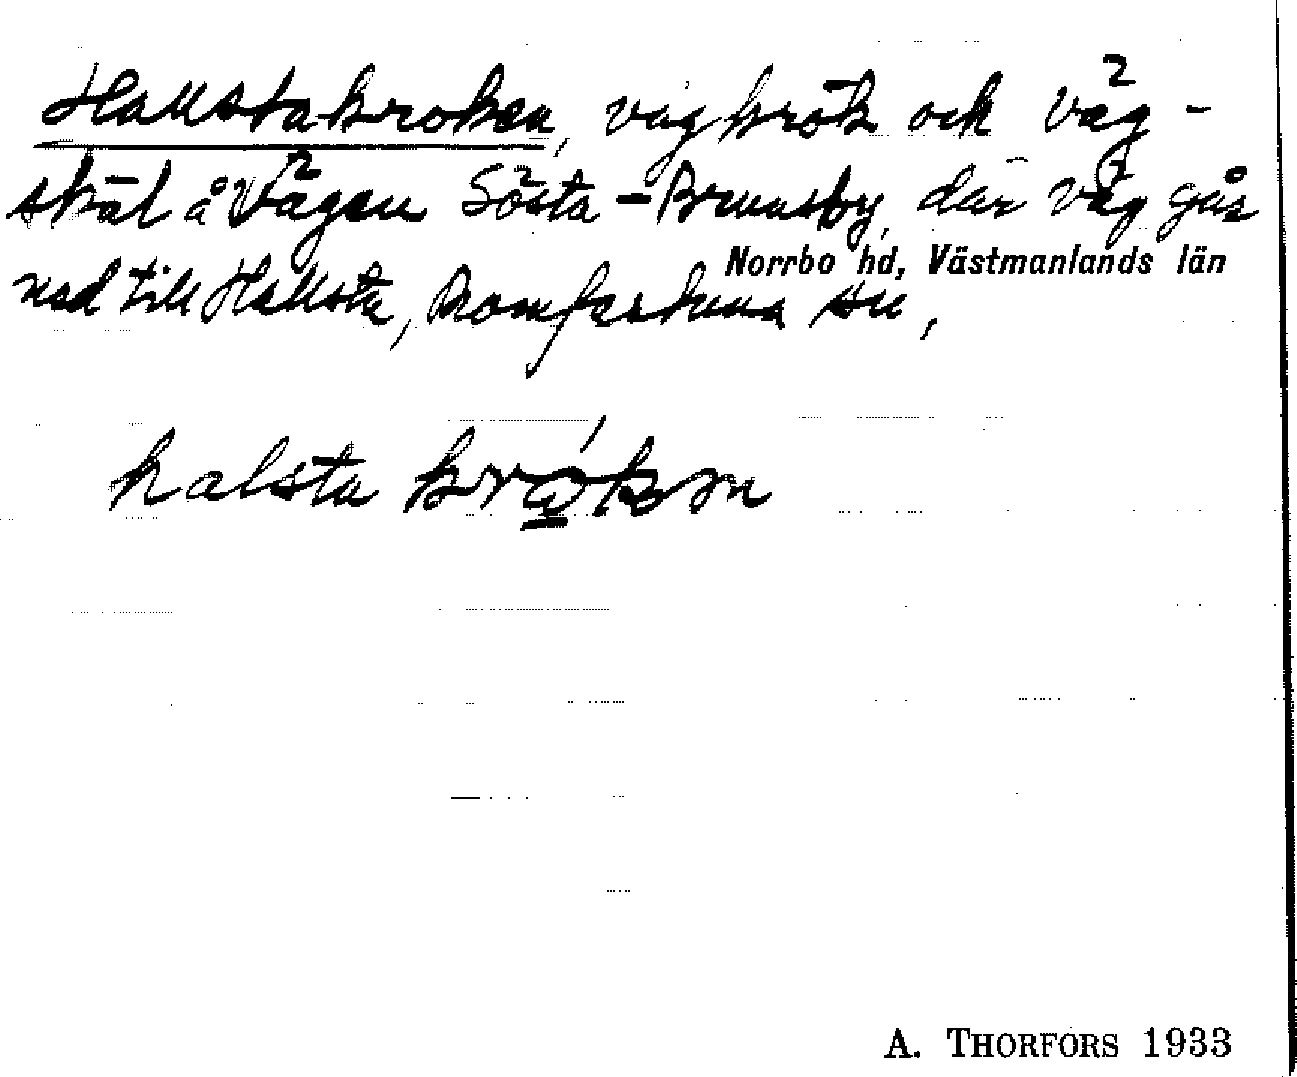 Hallstakroken, vägkrök och väg-
skäl å vägen Sösta - Brunsby, där väg går
ned till Hallsta, Romfartuna sn,
Norrbo hd, Västmanlands län
halsta
A. THORFORS 1933